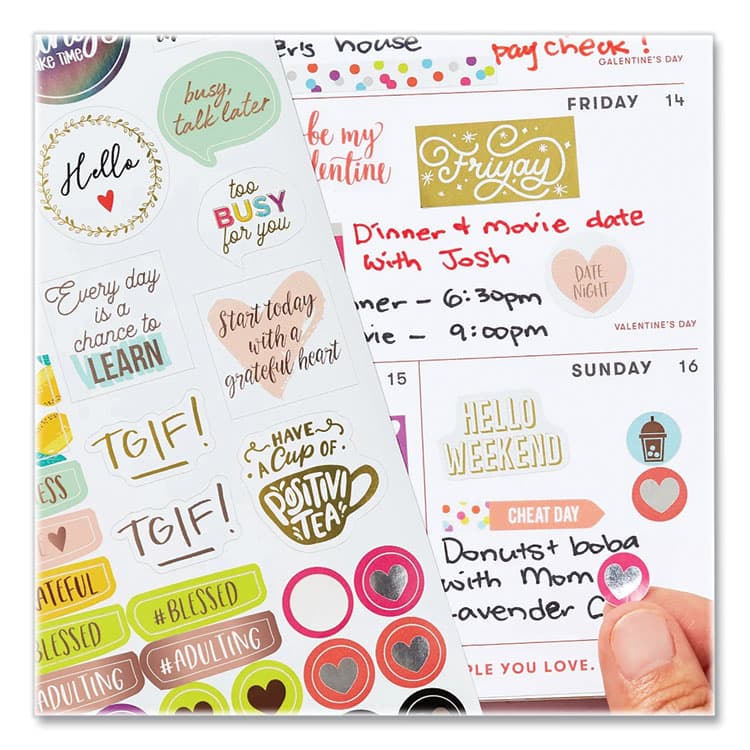 TAKE TIME
busy,
talk later
Hello
too
BUSY
for you
Every day
is a
chance to
LEARN
Start today
with a
grateful heart
TG|F!
HAVE
A CUP OF
POSITIVI
TEA
TG|F!
#BLESSED
BLESSED
#ADULTING
ADULTING
house
pay check!
GALENTINE'S DAY
FRIDAY 14
be my
Friyay
Dinner + movie date
with Josh
DATE
NIGHT
- 6:30pm
- 9:00pm
VALENTINE'S DAY
15
SUNDAY 16
HELLO
WEEKEND
CHEAT DAY
Donuts + boba
with Mom
Lavender
YOU LOVE.